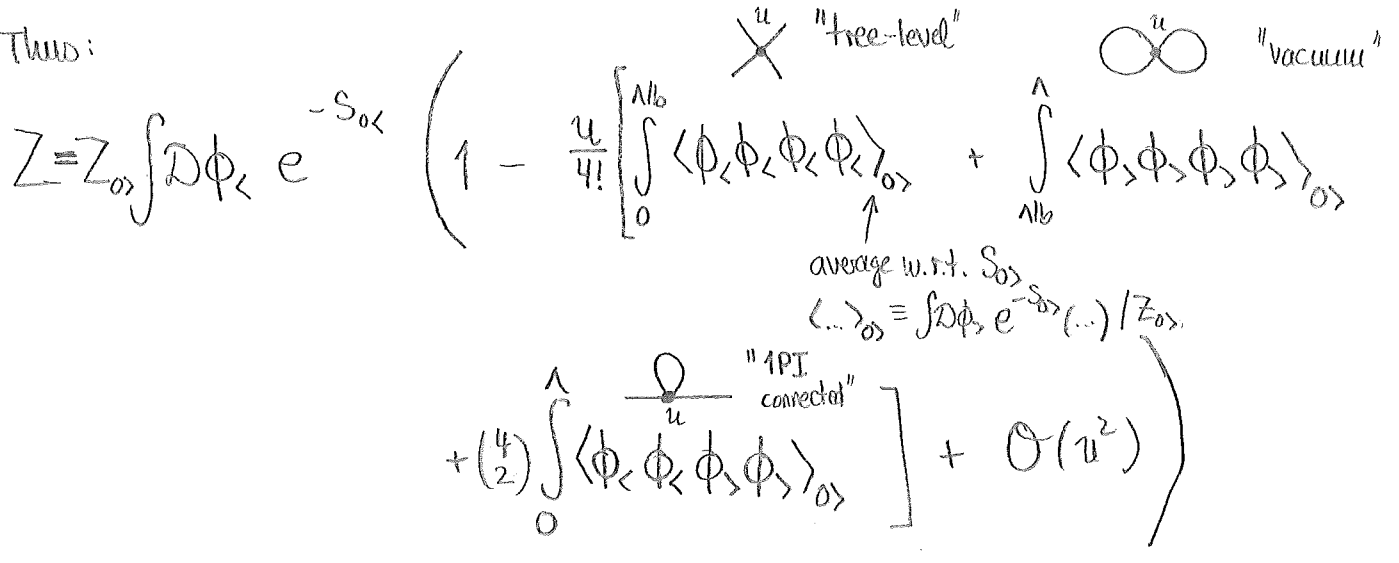 Thus:
u "tree-level" u "vacuum"
Z = Z₀> ∫Dϕ< e^{-S₀<} ( 1 - u/4! [ ∫_0^{Λ/b} ⟨ϕ<ϕ<ϕ<ϕ<⟩₀> + ∫_{Λ/b}^Λ ⟨ϕ>ϕ>ϕ>ϕ>⟩₀>
average w.r.t. S₀>
⟨...⟩₀> ≡ ∫Dϕ> e^{-S₀>} (...) / Z₀>.
u "1PI connected"
+ (4 2) ∫_0^Λ ⟨ϕ<ϕ<ϕ>ϕ>⟩₀> ] + O(u²) )